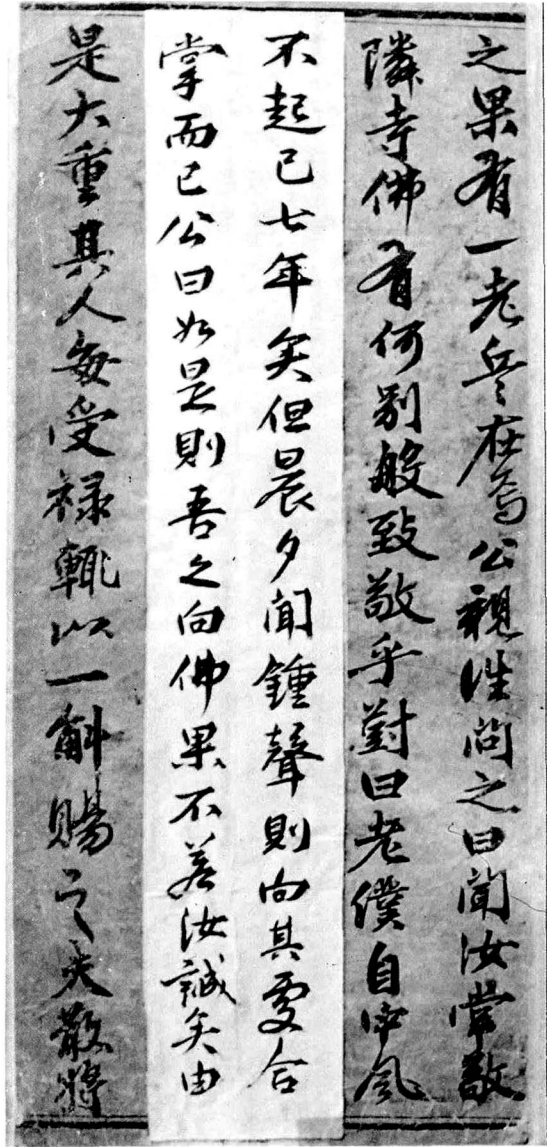 之果有一老兵在焉公親往問之曰聞汝常敬
隣寺佛有何別般致敬乎對曰老僕自中風
不起已七年矣但晨夕聞鍾聲則向其處合
掌而已公曰如是則吾之向佛果不若汝誠矣由
是大重其人每受祿輒以一斛賜之夫散將